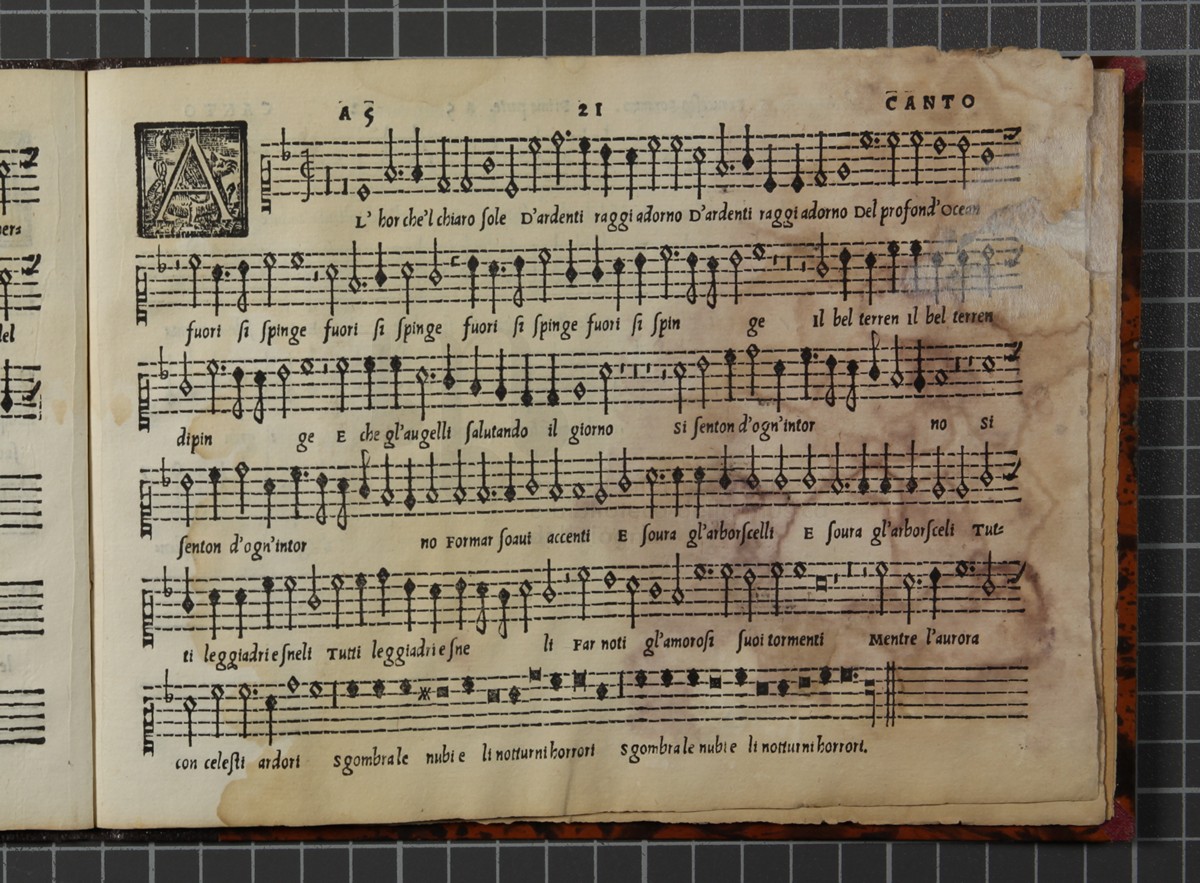 A 5 21 CANTO
A L' hor che'l chiaro sole D'ardenti raggi adorno D'ardenti raggi adorno Del profond'Ocean
fuori si spinge fuori si spinge fuori si spinge fuori si spin ge Il bel terren Il bel terren
dipin ge E che gl'augelli salutando il giorno Si senton d'ogn'intor no Si
senton d'ogn'intor no Formar soaui accenti E soura gl'arborscelli E soura gl'arborsceli Tut=
ti leggiadri e sneli Tutti leggiadri e sne li Far noti gl'amorosi suoi tormenti Mentre l'aurora
con celesti ardori Sgombra le nubi e li notturni horrori Sgombra le nubi e li notturni horrori.